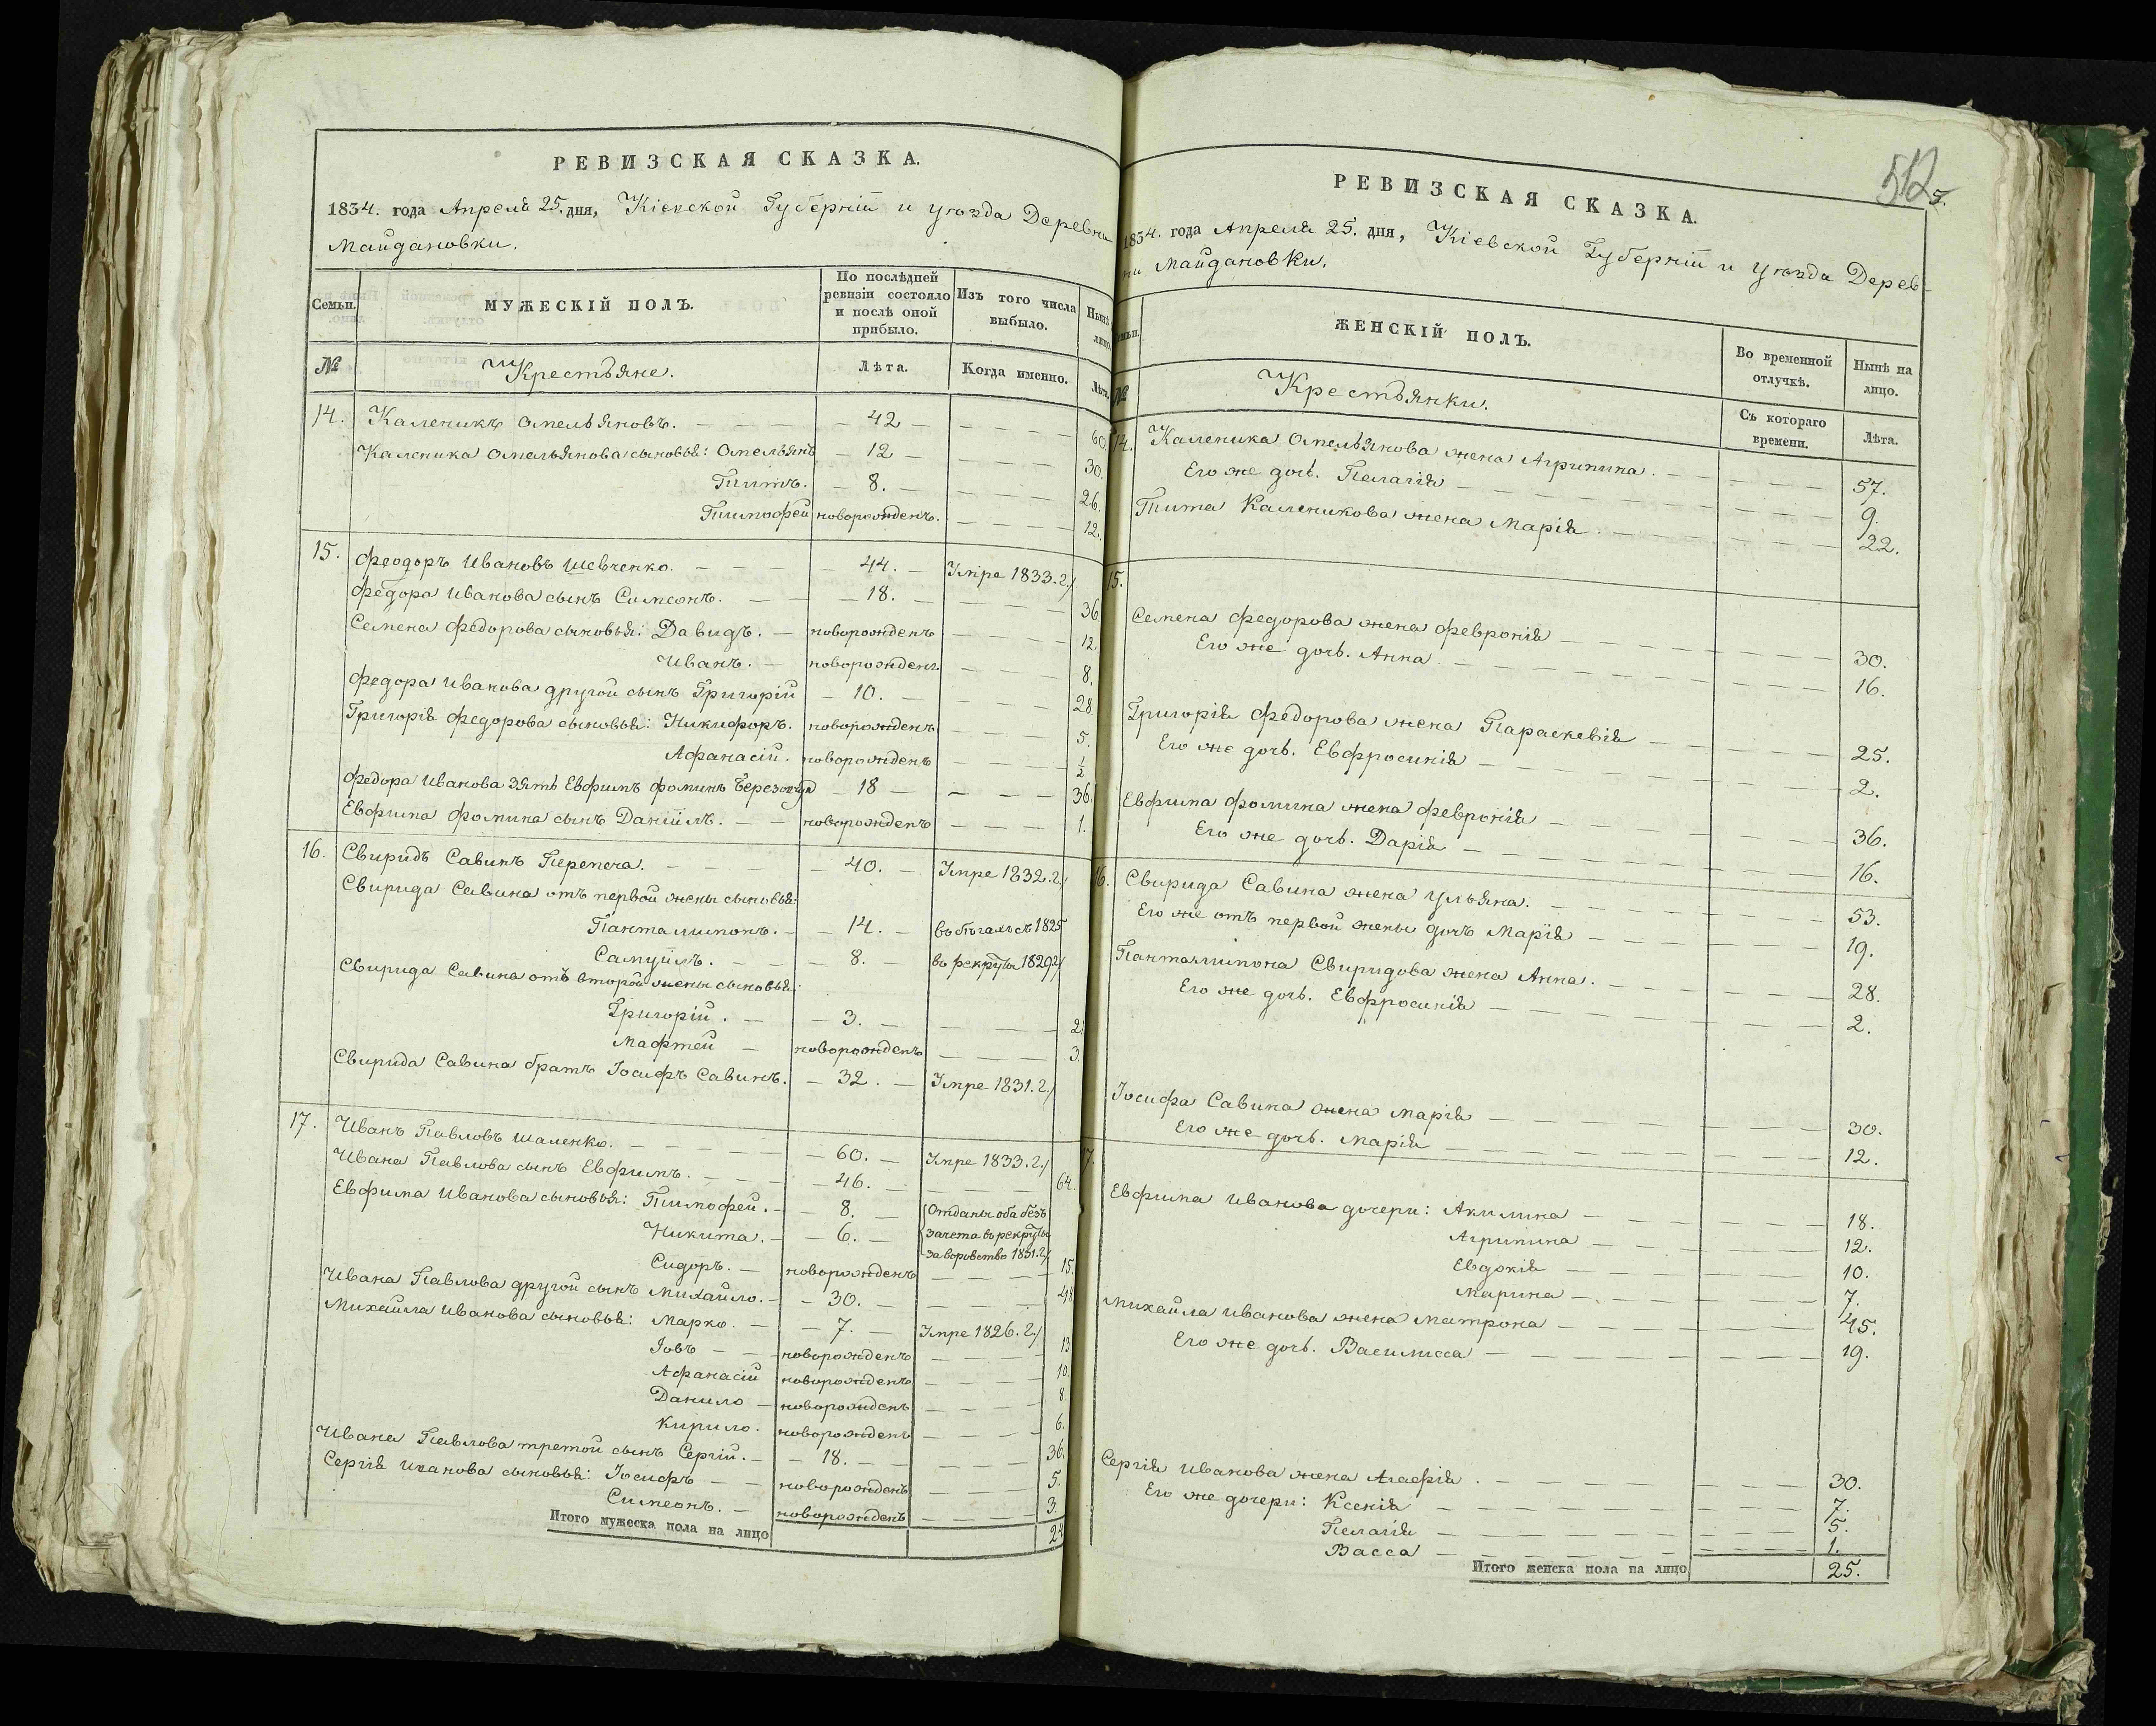 РЕВИЗСКАЯ СКАЗКА.
1834. года Апреля 25. дня, Кіевской Губерніи и уѣзда Деревни
Майдановки.
Семьи. МУЖЕСКІЙ ПОЛЪ. По послѣдней ревизіи состояло и послѣ оной прибыло. Изъ того числа выбыло. Нынѣ лицо.
№ Крестьяне. Лѣта. Когда именно. Лѣта.
14. Каленикъ Омельяновъ. 42 60
Каленика Омельянова сыновья: Омельянъ 12 30.
Титъ. 8. 26.
Тимофей новорожденъ. 12.
15. Феодоръ Ивановъ Шевченко. 44. Умре 1833. г.
Федора Иванова сынъ Симеонъ. 18. 36
Семена Федорова сыновья: Давидъ. новорожденъ 12.
Иванъ. новорожденъ 8.
Федора Иванова другой сынъ Григорій 10. 28
Григорія Федорова сыновья: Никифоръ. новорожденъ 5.
Афанасій. новорожденъ ½
Федора Иванова зять Евфимъ Фоминъ 18 36.
Евфима Фомина сынъ Даніилъ. новорожденъ 1.
16. Свиридъ Савинъ Перепеча. 40. Умре 1832. г.
Свирида Савина отъ первой жены сыновья:
Панталимонъ. 14. въ бѣгахъ съ 1825
Самуйлъ. 8. въ рекруты 1829 г
Свирида Савина отъ второй жены сыновья:
Григорій. 3. 21
Мафтей новорожденъ 3.
Свирида Савина братъ Іосифъ Савинъ. 32. Умре 1831. г.
17. Иванъ Павловъ Шаленко. 60. Умре 1833. г.
Ивана Павлова сынъ Евфимъ. 46. 64.
Евфима Иванова сыновья: Тимофей. 8. Отданы оба безъ
Никита. 6. зачета въ рекруты
за воровство 1831. г.
Сидоръ. новорожденъ 15.
Ивана Павлова другой сынъ Михайло. 30. 48
Михайла Иванова сыновья: Марко. 7. Умре 1826. г.
Іовъ новорожденъ 13
Афанасій новорожденъ 10.
Данило новорожденъ 8.
Кирило. новорожденъ 6.
Ивана Павлова третой сынъ Сергій. 18. 36.
Сергія Иванова сыновья: Іосифъ новорожденъ 5.
Симеонъ. новорожденъ 3.
Итого мужеска пола на лицо 24
512
РЕВИЗСКАЯ СКАЗКА.
1834. года Апреля 25. дня, Кіевской Губерніи и уѣзда Дерев-
ни Майдановки.
Семьи. ЖЕНСКІЙ ПОЛЪ. Во временной отлучкѣ. Нынѣ на лицо.
№ Крестьянки. Съ котораго времени. Лѣта.
14. Каленика Омельянова жена Агрипина. 57.
Его же дочь. Пелагія 9.
Тита Каленикова жена Марія 22.
15.
Семена Федорова жена Февронія 30.
Его же дочь. Анна 16.
Григорія Федорова жена Параскевія 25.
Его же дочь. Евфросинія 2.
Евфима Фомина жена Февронія 36.
Его же дочь. Дарія 16.
16. Свирида Савина жена Ульяна. 53.
Его же отъ первой жены дочь Марія 19.
Панталимона Свиридова жена Анна. 28.
Его же дочь. Евфросинія 2.
Іосифа Савина жена Марія 30.
Его же дочь. Марія 12.
17.
Евфима Иванова дочери: Акилина 18.
Агрипина 12.
Евдокія 10.
Марина 7.
Михайла Иванова жена Матрона 45.
Его же дочь. Василисса 19.
Сергія Иванова жена Агафія. 30.
Его же дочери: Ксенія 7.
Пелагія 5.
Васса 1.
Итого женска пола на лицо 25.